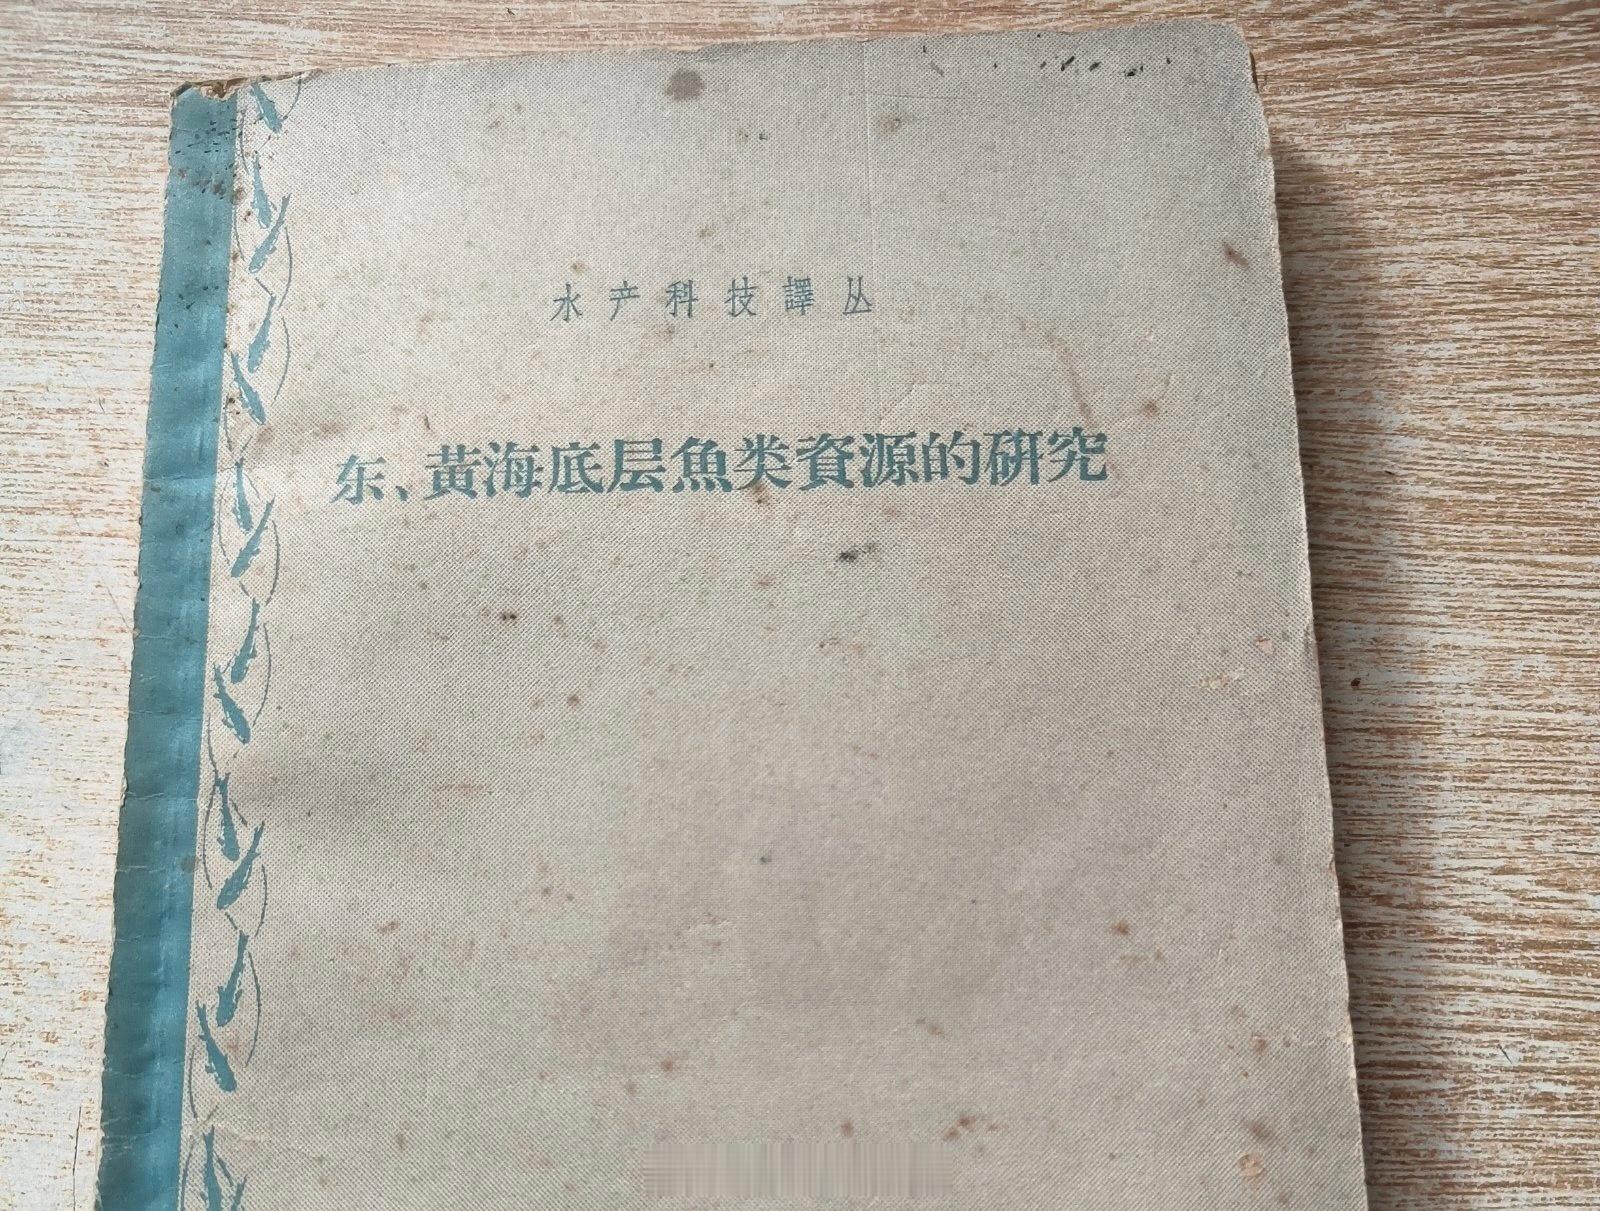 水产科技譯丛
东、黃海底层魚类資源的硏究